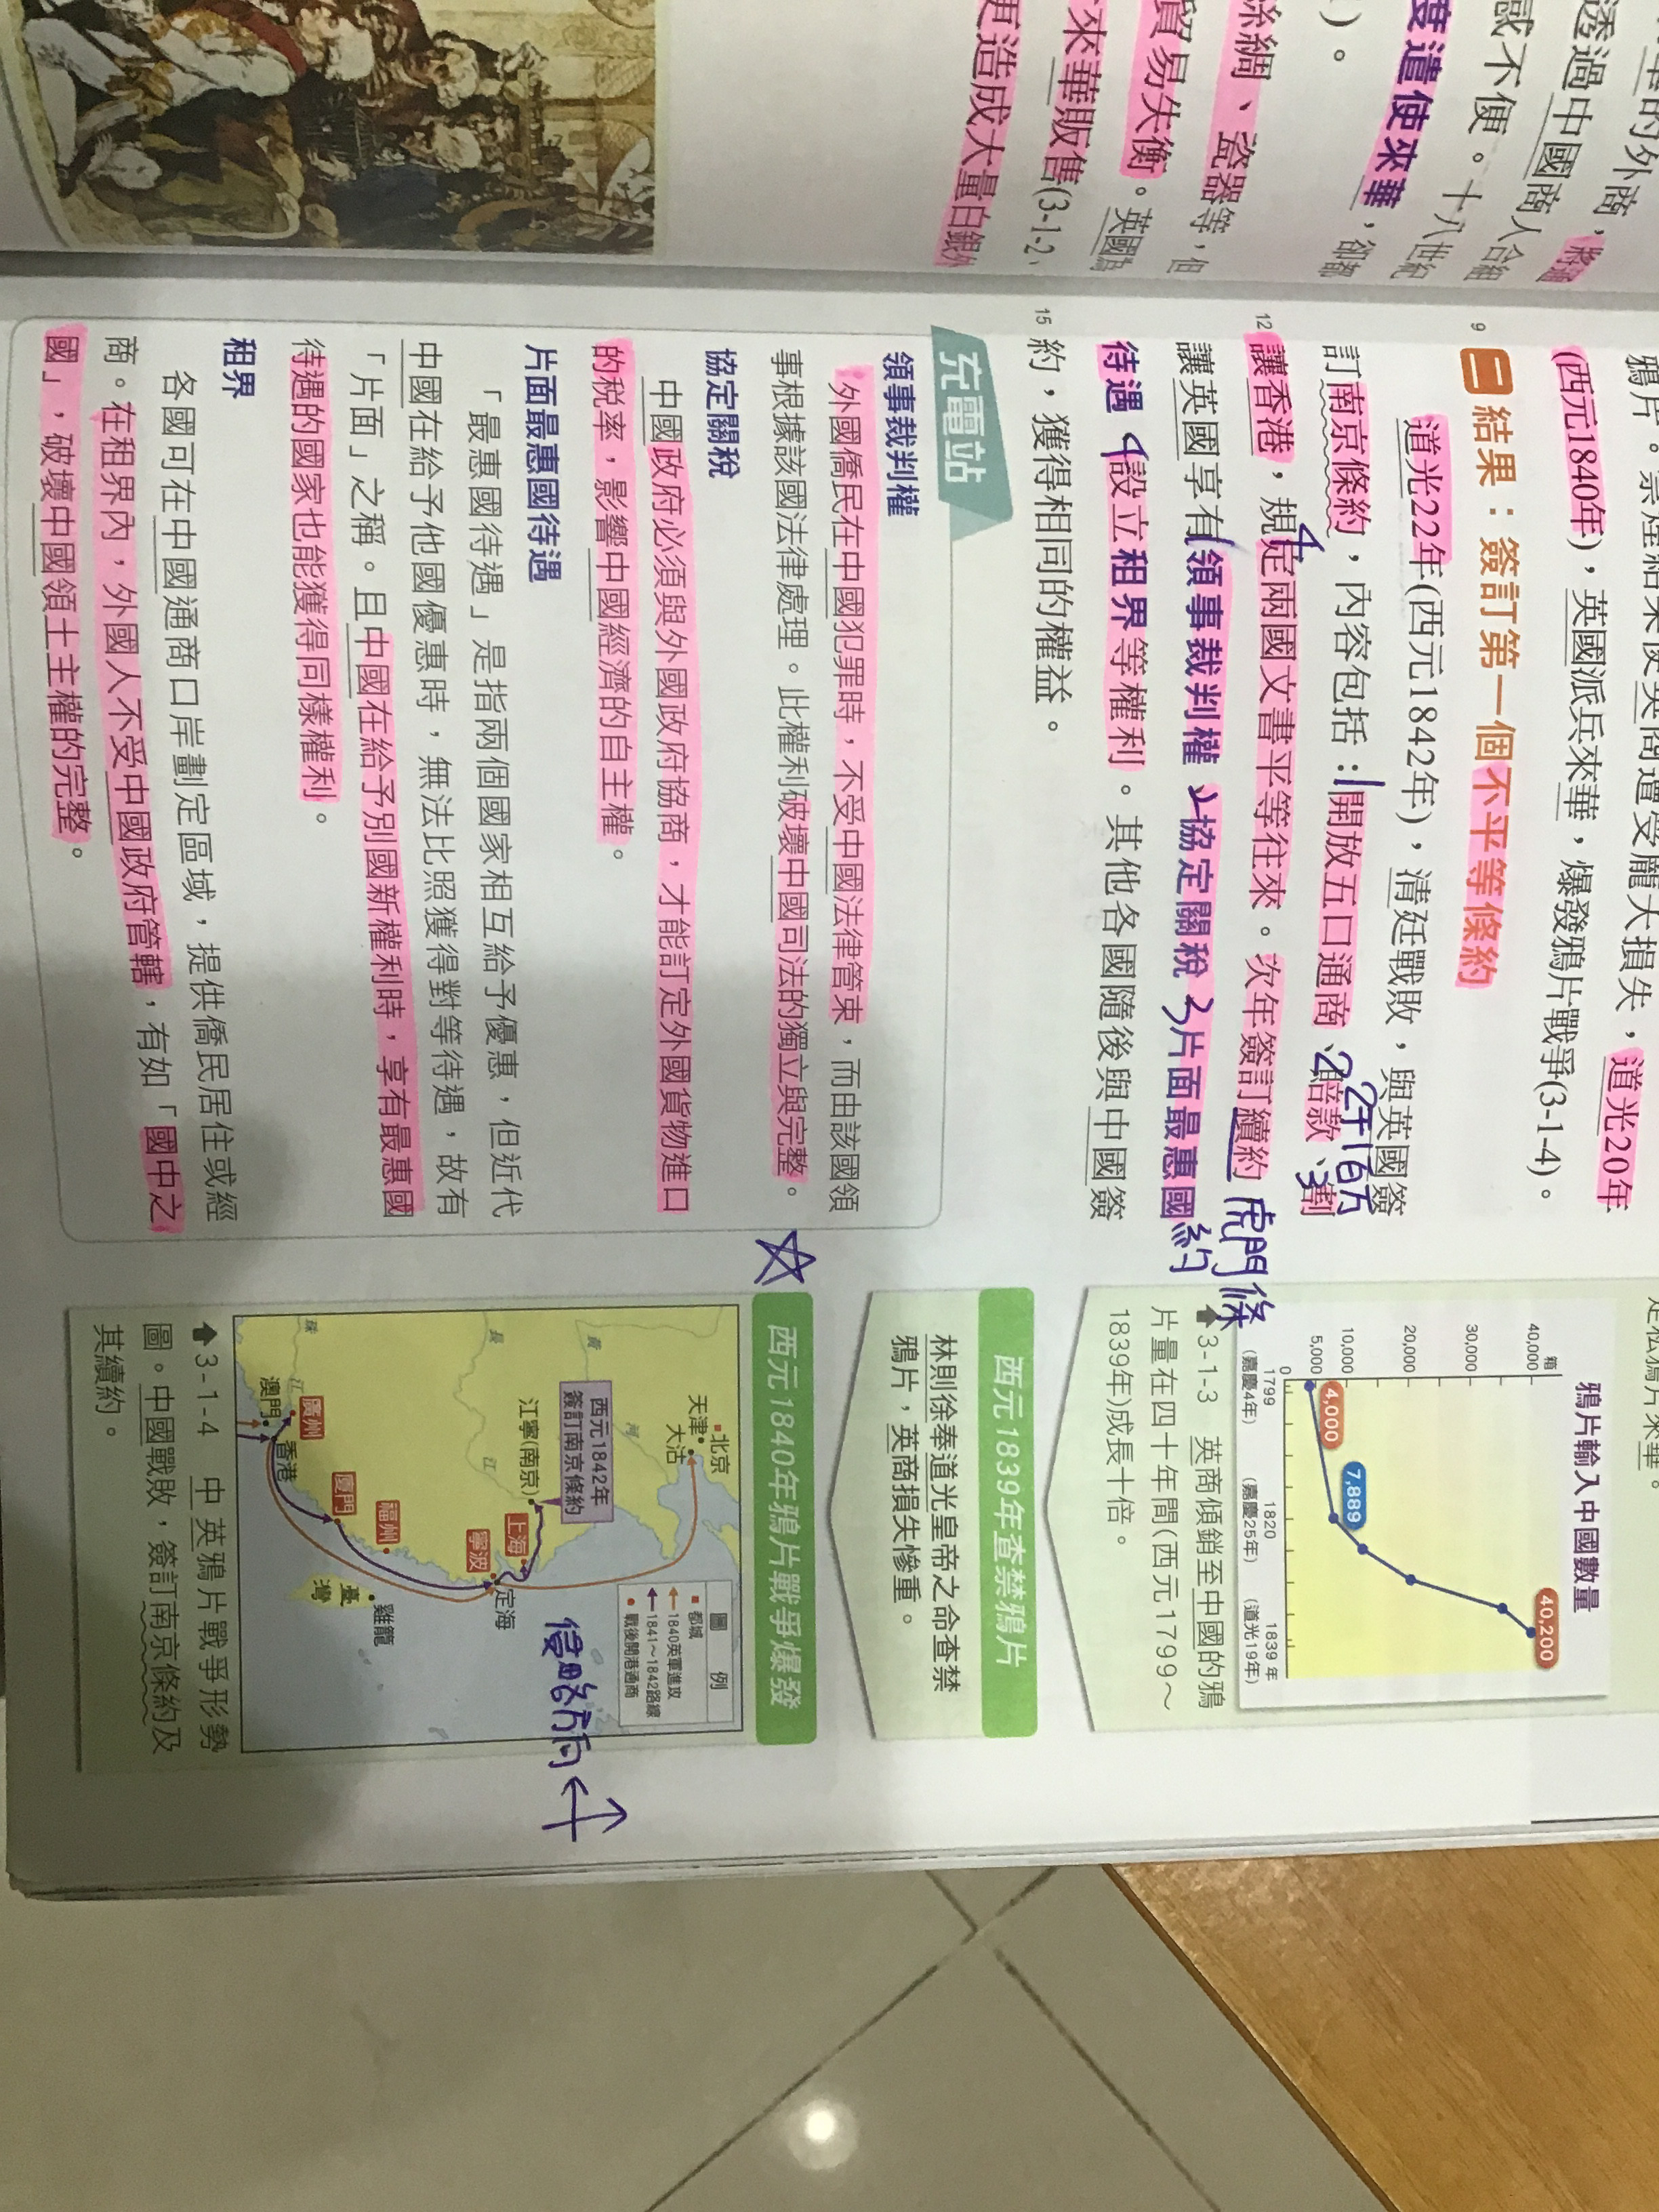 透過中國商人
感不便。十八世紀
度遣使來華,
)。
絲綢、瓷器等,但
貿易失衡。英國為
來華販售(3-1-2、
更造成大量白銀外
道光20年
(西元1840年),英國派兵來華,爆發鴉片戰爭(3-1-4)。
9
二 結果:簽訂第一個不平等條約
道光22年(西元1842年),清廷戰敗,與英國簽
訂南京條約,內容包括:1開放五口通商、2賠款、3割
2千1百万
12
讓香港,4規定兩國文書平等往來。次年簽訂續約 虎門條約
讓英國享有1領事裁判權、2協定關稅、3片面最惠國
待遇、4設立租界等權利。其他各國隨後與中國簽
15
約,獲得相同的權益。
充電站
領事裁判權
外國僑民在中國犯罪時,不受中國法律管束,而由該國領
事根據該國法律處理。此權利破壞中國司法的獨立與完整。
協定關稅
中國政府必須與外國政府協商,才能訂定外國貨物進口
的稅率,影響中國經濟的自主權。
片面最惠國待遇
「最惠國待遇」是指兩個國家相互給予優惠,但近代
中國在給予他國優惠時,無法比照獲得對等待遇,故有
「片面」之稱。且中國在給予別國新權利時,享有最惠國
待遇的國家也能獲得同樣權利。
租界
各國可在中國通商口岸劃定區域,提供僑民居住或經
商。在租界內,外國人不受中國政府管轄,有如「國中之
國」,破壞中國領土主權的完整。
鴉片輸入中國數量
箱
40,000
30,000
20,000
10,000
5,000
0
4,000
7,889
40,200
1799
(嘉慶4年)
1820
(嘉慶25年)
1839年
(道光19年)
3-1-3 英商傾銷至中國的鴉
片量在四十年間(西元1799~
1839年)成長十倍。
西元1839年查禁鴉片
林則徐奉道光皇帝之命查禁
鴉片,英商損失慘重。
西元1840年鴉片戰爭爆發
圖例
都城
1840英軍進攻
1841~1842路線
戰後開港通商
北京
天津
大沽
黃
河
西元1842年
簽訂南京條約
江寧(南京)
長
江
上海
寧波
定海
福州
廈門
雞籠
臺灣
廣州
珠
江
澳門
香港
侵略方向
3-1-4 中英鴉片戰爭形勢
圖。中國戰敗,簽訂南京條約及
其續約。